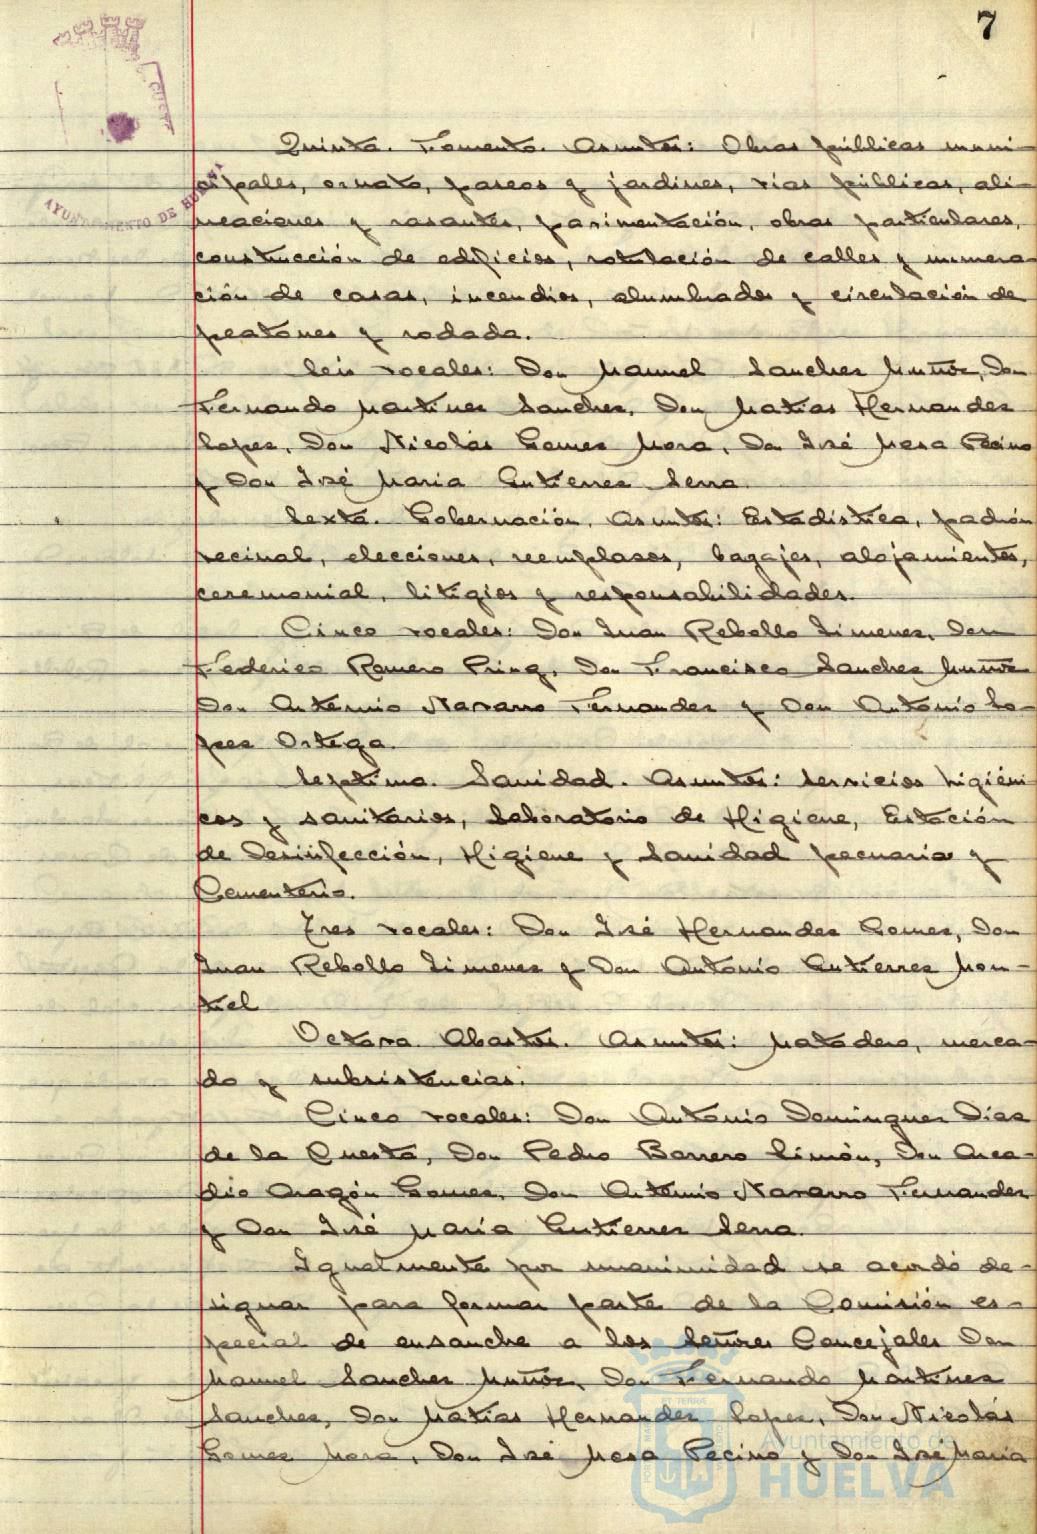 7
AYUNTAMIENTO DE HUELVA
Quinta. Fomento. Asuntos: Obras públicas muni-
cipales, ornato, paseos y jardines, vias públicas, ali-
neaciones y rasantes, pavimentación, obras particulares,
construcción de edificios, rotulación de calles y numera-
ción de casas, incendios, alumbrados y circulación de
peatones y rodada.
Seis vocales: Don Manuel Sanchez Muñoz, Don
Fernando Martinez Sanchez, Don Matias Hernandez
Lopez, Don Nicolás Gomez Mora, Don José Mesa Pecino
y Don José Maria Gutierrez Serra.
Sexta. Gobernación, Asuntos: Estadística, padrón
vecinal, elecciones, reemplazos, bagajes, alojamientos,
ceremonial, litigios y responsabilidades.
Cinco vocales: Don Juan Rebollo Jimenez, Don
Federico Romero Pring, Don Francisco Sanchez Muñoz
Don Antonio Navarro Fernandez y Don Antonio Lo-
pez Ortega.
Septima. Sanidad. Asuntos: Servicios higiéni
cos y sanitarios, Laboratorio de Higiene, Estación
de Desinfección, Higiene y Sanidad pecuaria y
Cementerio.
Tres vocales: Don José Hernandez Gomez, Don
Juan Rebollo Jimenez y Don Antonio Gutierrez Mon-
tiel
Octava. Abastos. Asuntos: Matadero, merca-
do y subsistencias.
Cinco vocales: Don Antonio Dominguez Diaz
de la Cuesta, Don Pedro Barrero Limón, Don Arca-
dio Aragón Gomez, Don Antonio Navarro Fernandez
y Don José Maria Gutierrez Serra.
Igualmente por unanimidad se acordó de-
signar para formar parte de la Comisión es-
pecial de ensanche a los Señores Concejales Don
Manuel Sanchez Muñoz, Don Fernando Martinez
Sanchez, Don Matías Hernandez Lopez, Don Nicolás
Gomez Mora, Don José Mesa Pecino y Don José Maria
Ayuntamiento de
HUELVA